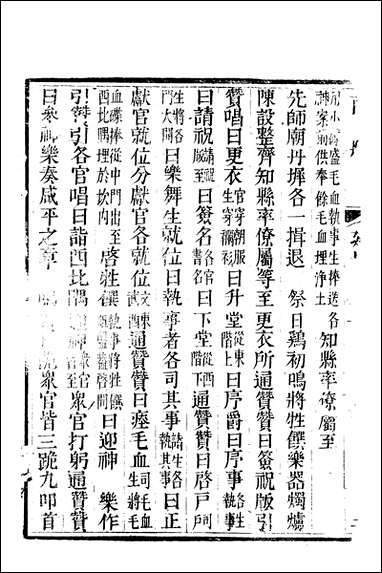 用小碟盛毛血執事生捧送各
神案前供奉餘毛血埋淨土知縣率僚屬至
先師廟丹墀各一揖退 祭日鷄初鳴將牲饌樂器燭爐
陳設整齊知縣率僚屬等至更衣所通贊贊曰簽祝版引
贊唱曰更衣官穿朝服生穿襴衫曰升堂從東階上曰序爵曰序事各生執事
曰請祝曰簽名各官書名曰下堂從西階下通贊贊曰啓戶司
門生將各大開曰樂舞生就位曰執事者各司其事諸生各執其事曰正
獻官就位分獻官各就位文東武西通贊贊曰瘞毛血司毛血生將毛
血碟捧從中門出至西北隅埋於坎內啓牲饌執事將牲饌曰迎神 樂作
引贊引各官唱曰詣西北隅迎神衆官至衆官打躬通贊贊
曰參神樂奏咸平之章衆官皆三跪九叩首